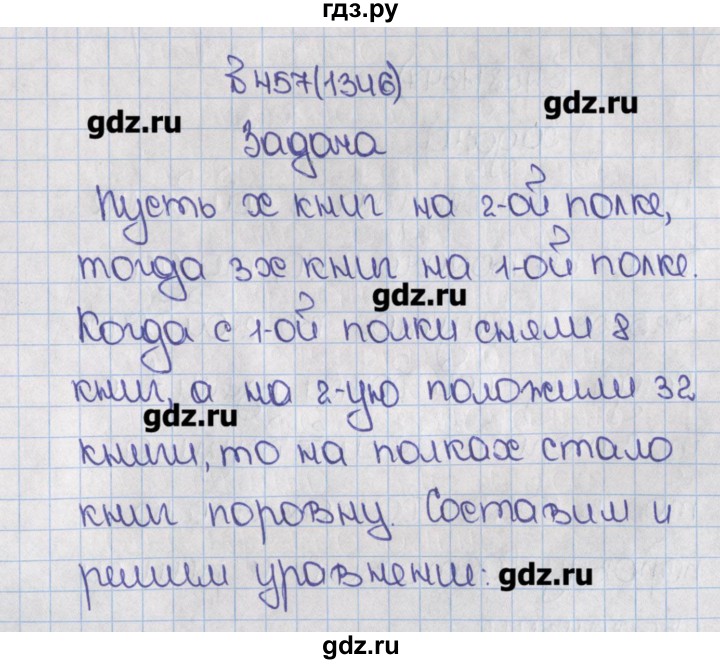 гдз.ру
В 457(1346)
gdz.ru
gdz.ru
Задача
Пусть x книг на 2-ой полке,
тогда 3x книг на 1-ой полке.
gdz.ru
Когда с 1-ой полки сняли 8
книг, а на 2-ую положили 32
gdz.ru
книги, то на полках стало
книг поровну. Составим и
решим уравнение:
gdz.ru
gdz.ru